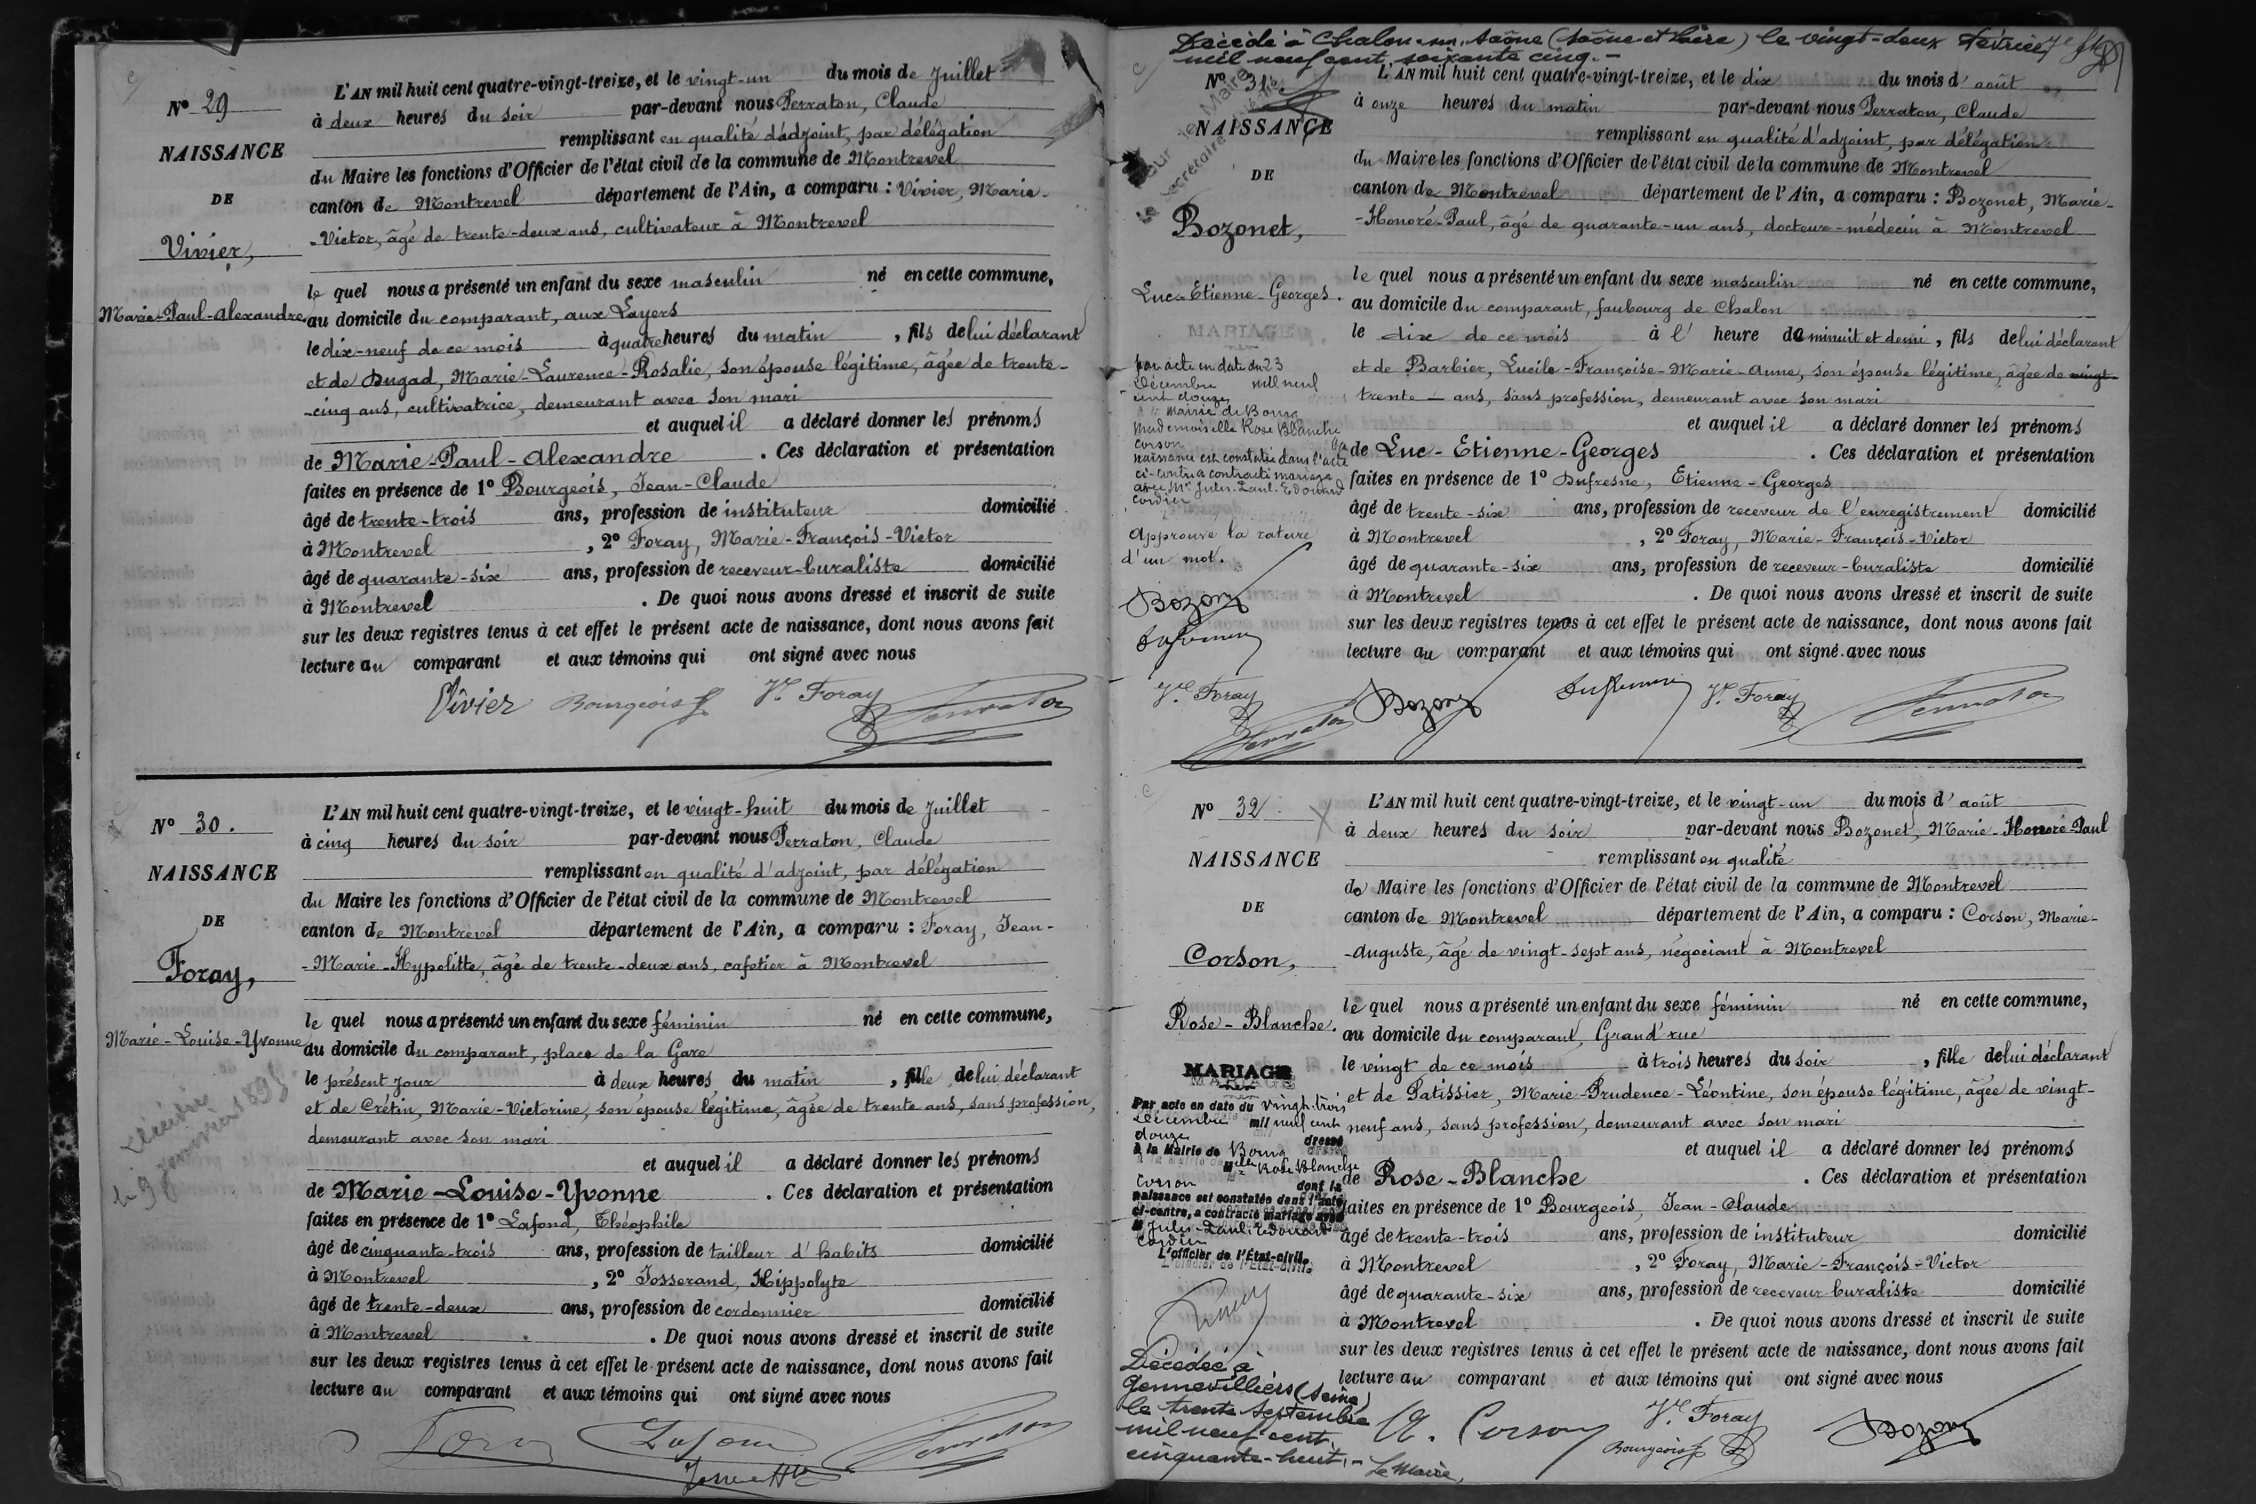 L'AN mil huit cent quatre-vingt-treize, et le vingt-un du mois de Juillet
N° 29
à deux heures du soir par-devant nous Perraton, Claude
remplissant en qualité d'adjoint, par délégation
NAISSANCE
du Maire les fonctions d'Officier de l'état civil de la commune de Montrevel
DE
canton de Montrevel département de l'Ain, a comparu : Vivier, Marie-
-Victor, âgé de trente-deux ans, cultivateur à Montrevel
Vivier,
le quel nous a présenté un enfant du sexe masculin né en cette commune,
Marie-Paul-Alexandre.
au domicile du comparant, aux Layers
le dix-neuf de ce mois à quatre heures du matin, fils de lui déclarant
et de Dugad, Marie-Laurence-Rosalie, son épouse légitime, âgée de trente-
-cinq ans, cultivatrice, demeurant avec son mari
et auquel il a déclaré donner les prénoms
de Marie-Paul-Alexandre. Ces déclaration et présentation
faites en présence de 1° Bourgeois, Jean-Claude
âgé de trente-trois ans, profession de instituteur domicilié
à Montrevel, 2° Foray, Marie-François-Victor
âgé de quarante-six ans, profession de receveur-buraliste domicilié
à Montrevel. De quoi nous avons dressé et inscrit de suite
sur les deux registres tenus à cet effet le présent acte de naissance, dont nous avons fait
lecture au comparant et aux témoins qui ont signé avec nous
Vivier Bourgeois Vr Foray Perraton
L'AN mil huit cent quatre-vingt-treize, et le vingt-huit du mois de Juillet
N° 30.
à cinq heures du soir par-devant nous Perraton, Claude
NAISSANCE
remplissant en qualité d'adjoint, par délégation
du Maire les fonctions d'Officier de l'état civil de la commune de Montrevel
DE
canton de Montrevel département de l'Ain, a comparu : Foray, Jean-
-Marie-Hypolitte, âgé de trente-deux ans, cafetier à Montrevel
Foray,
le quel nous a présenté un enfant du sexe féminin né en cette commune,
Marie-Louise-Yvonne
au domicile du comparant, place de la Gare
le présent jour à deux heures du matin, fille de lui déclarant
et de Crétin, Marie-Victorine, son épouse légitime, âgée de trente ans, sans profession,
demeurant avec son mari
et auquel il a déclaré donner les prénoms
de Marie-Louise-Yvonne. Ces déclaration et présentation
le 9 janvier 1895
faites en présence de 1° Lafond, Théophile
âgé de cinquante-trois ans, profession de tailleur d'habits domicilié
à Montrevel, 2° Josserand, Hippolyte
âgé de trente-deux ans, profession de cordonnier domicilié
à Montrevel. De quoi nous avons dressé et inscrit de suite
sur les deux registres tenus à cet effet le présent acte de naissance, dont nous avons fait
lecture au comparant et aux témoins qui ont signé avec nous
Foray Lafond Perraton
Décédé à Chalon-sur-Saône (Saône et Loire) le vingt-deux Février
mil neuf cent soixante cinq.-
N° 31
L'AN mil huit cent quatre-vingt-treize, et le dix du mois d'août
à onze heures du matin par-devant nous Perraton, Claude
NAISSANCE
remplissant en qualité d'adjoint, par délégation
du Maire les fonctions d'Officier de l'état civil de la commune de Montrevel
DE
canton de Montrevel département de l'Ain, a comparu : Bozonet, Marie-
-Honoré-Paul, âgé de quarante-un ans, docteur-médecin à Montrevel
Bozonet,
le quel nous a présenté un enfant du sexe masculin né en cette commune,
Luc-Etienne-Georges.
au domicile du comparant, faubourg de Chalon
MARIAGE
le dix de ce mois à l'heure de minuit et demi, fils de lui déclarant
et de Barbier, Lucile-Françoise-Marie-Anne, son épouse légitime, âgée de vingt
trente - ans, sans profession, demeurant avec son mari
et auquel il a déclaré donner les prénoms
de Luc-Etienne-Georges. Ces déclaration et présentation
faites en présence de 1° Dufresne, Etienne-Georges
âgé de trente-six ans, profession de receveur de l'enregistrement domicilié
à Montrevel, 2° Foray, Marie-François-Victor
âgé de quarante-six ans, profession de receveur-buraliste domicilié
à Montrevel. De quoi nous avons dressé et inscrit de suite
sur les deux registres tenus à cet effet le présent acte de naissance, dont nous avons fait
lecture au comparant et aux témoins qui ont signé avec nous
par acte en date du 23
Décembre mil neuf
cent douze
Mairie de Bourg
Mademoiselle Rose Blanche
Corson
naissance est constatée dans l'acte
ci-contre a contracté mariage
avec Mr Jules-Paul-Edouard
Cordier
Approuvé la rature
d'un mot.
Bozonet
Dufresne
Vr Foray
Perraton
Bozonet Dufresne Vr Foray Perraton
L'AN mil huit cent quatre-vingt-treize, et le vingt-un du mois d'août
N° 32
à deux heures du soir par-devant nous Bozonet, Marie-Honoré-Paul
NAISSANCE
remplissant en qualité
de Maire les fonctions d'Officier de l'état civil de la commune de Montrevel
DE
canton de Montrevel département de l'Ain, a comparu : Corson, Marie-
-Auguste, âgé de vingt-sept ans, négociant à Montrevel
Corson,
le quel nous a présenté un enfant du sexe féminin né en cette commune,
Rose-Blanche.
au domicile du comparant, Grand'rue
le vingt de ce mois à trois heures du soir, fille de lui déclarant
et de Patissier, Marie-Prudence-Léontine, son épouse légitime, âgée de vingt-
neuf ans, sans profession, demeurant avec son mari
et auquel il a déclaré donner les prénoms
de Rose-Blanche. Ces déclaration et présentation
faites en présence de 1° Bourgeois, Jean-Claude
âgé de trente-trois ans, profession de instituteur domicilié
à Montrevel, 2° Foray, Marie-François-Victor
âgé de quarante-six ans, profession de receveur buraliste domicilié
à Montrevel. De quoi nous avons dressé et inscrit de suite
sur les deux registres tenus à cet effet le présent acte de naissance, dont nous avons fait
lecture au comparant et aux témoins qui ont signé avec nous
MARIAGE
Par acte en date du vingt-trois
Décembre mil neuf cent
douze dressé
à la Mairie de Bourg
Melle Rose Blanche
Corson dont la
naissance est constatée dans l'acte
ci-contre, a contracté mariage avec
Mr Jules-Paul-Edouard
Cordier
L'officier de l'État-civil,
Décédée à
Gennevilliers (Seine)
le trente Septembre
mil neuf cent
cinquante-huit.-
Le Maire,
A. Corson Vr Foray Bourgeois Bozonet